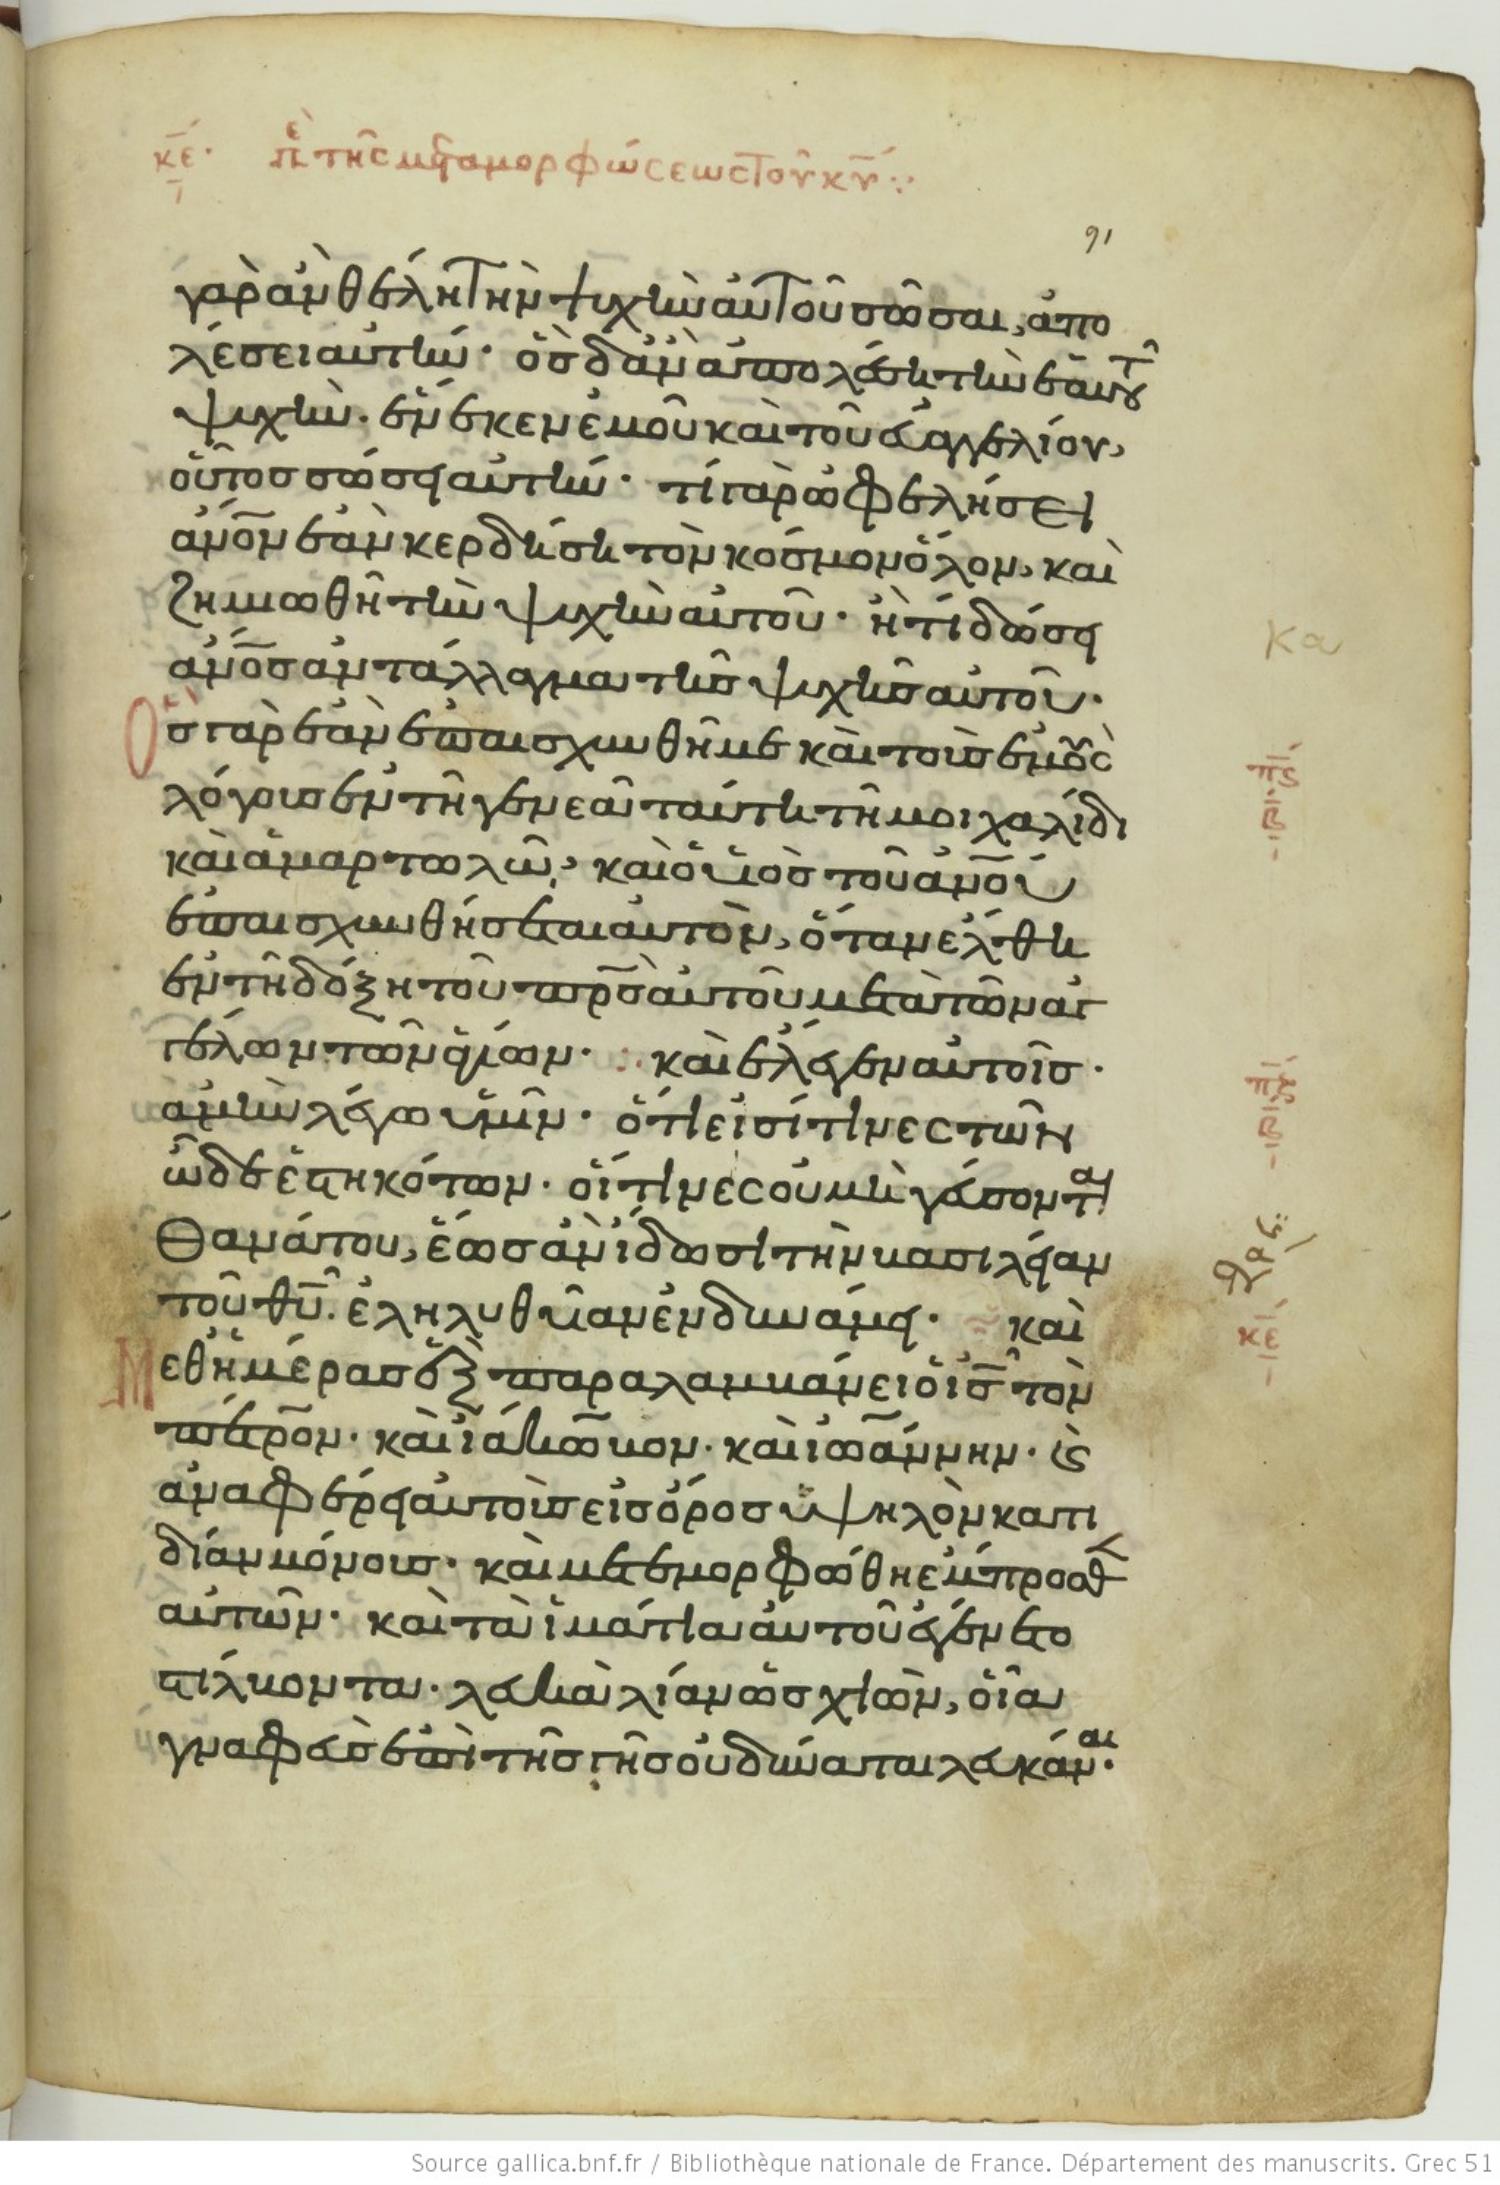 κε· πε τῆς μεταμορφώσεως τοῦ κυ ⁘
91
γὰρ ἂν θέλη τὴν ψυχὴν αὐτοῦ σῶσαι, ἀπο
λέσει αὐτήν· ὃς δἂν ἀπολέση τὴν ἑαυτοῦ
ψυχὴν. ἕνεκεν ἐμοῦ καὶ τοῦ εὐαγγελίου,
οὗτος σώσει αὐτήν· τί γὰρ ὠφελήσει
ἄνον ἐὰν κερδήση τὸν κόσμον ὅλον, καὶ
ζημιωθῆ τὴν ψυχὴν αὐτοῦ· ἢ τί δώσει
ἄνος ἀντάλλαγμα τῆς ψυχῆς αὐτοῦ·
Ὃς γὰρ ἐὰν ἐπαισχυνθῆ με καὶ τοὺς ἐμοὺς
λόγους ἐν τῆ γενεᾶ ταύτη τῆ μοιχαλίδι
καὶ ἁμαρτωλῶ, καὶ ὁ υἱὸς τοῦ ἀνου
ἐπαισχυνθήσεται αὐτὸν, ὅταν ἔλθη
ἐν τῆ δόξη τοῦ πρς αὐτοῦ μετὰ τῶν ἀγ
γέλων τῶν ἁγίων· καὶ ἔλεγεν αὐτοῖς·
ἀμὴν λέγω ὑμῖν· ὅτι εἰσί τινες τῶν
ὧδε ἑστηκότων· οἵτινες οὐ μὴ γεύσονται
θανάτου, ἕως ἂν ἴδωσι τὴν βασιλείαν
τοῦ θυ. ἐληλυθυῖαν ἐν δυνάμει· καὶ
Μεθ ἡμέρας ἓξ παραλαμβάνει ὁ ις τὸν
πέτρον. καὶ ἰάκωβον. καὶ ἰωάννην. καὶ
ἀναφέρει αὐτοὺς εἰς ὄρος ὑψηλὸν κατι
δίαν μόνους· καὶ μετεμορφώθη ἔμπροσθεν
αὐτῶν· καὶ τὰ ἱμάτια αὐτοῦ ἐγένετο
στίλβοντα. λευκὰ λίαν ὡς χιὼν, οἷα
γναφεὺς ἐπὶ τῆς γῆς οὐ δύναται λευκάναι·
κα
κε